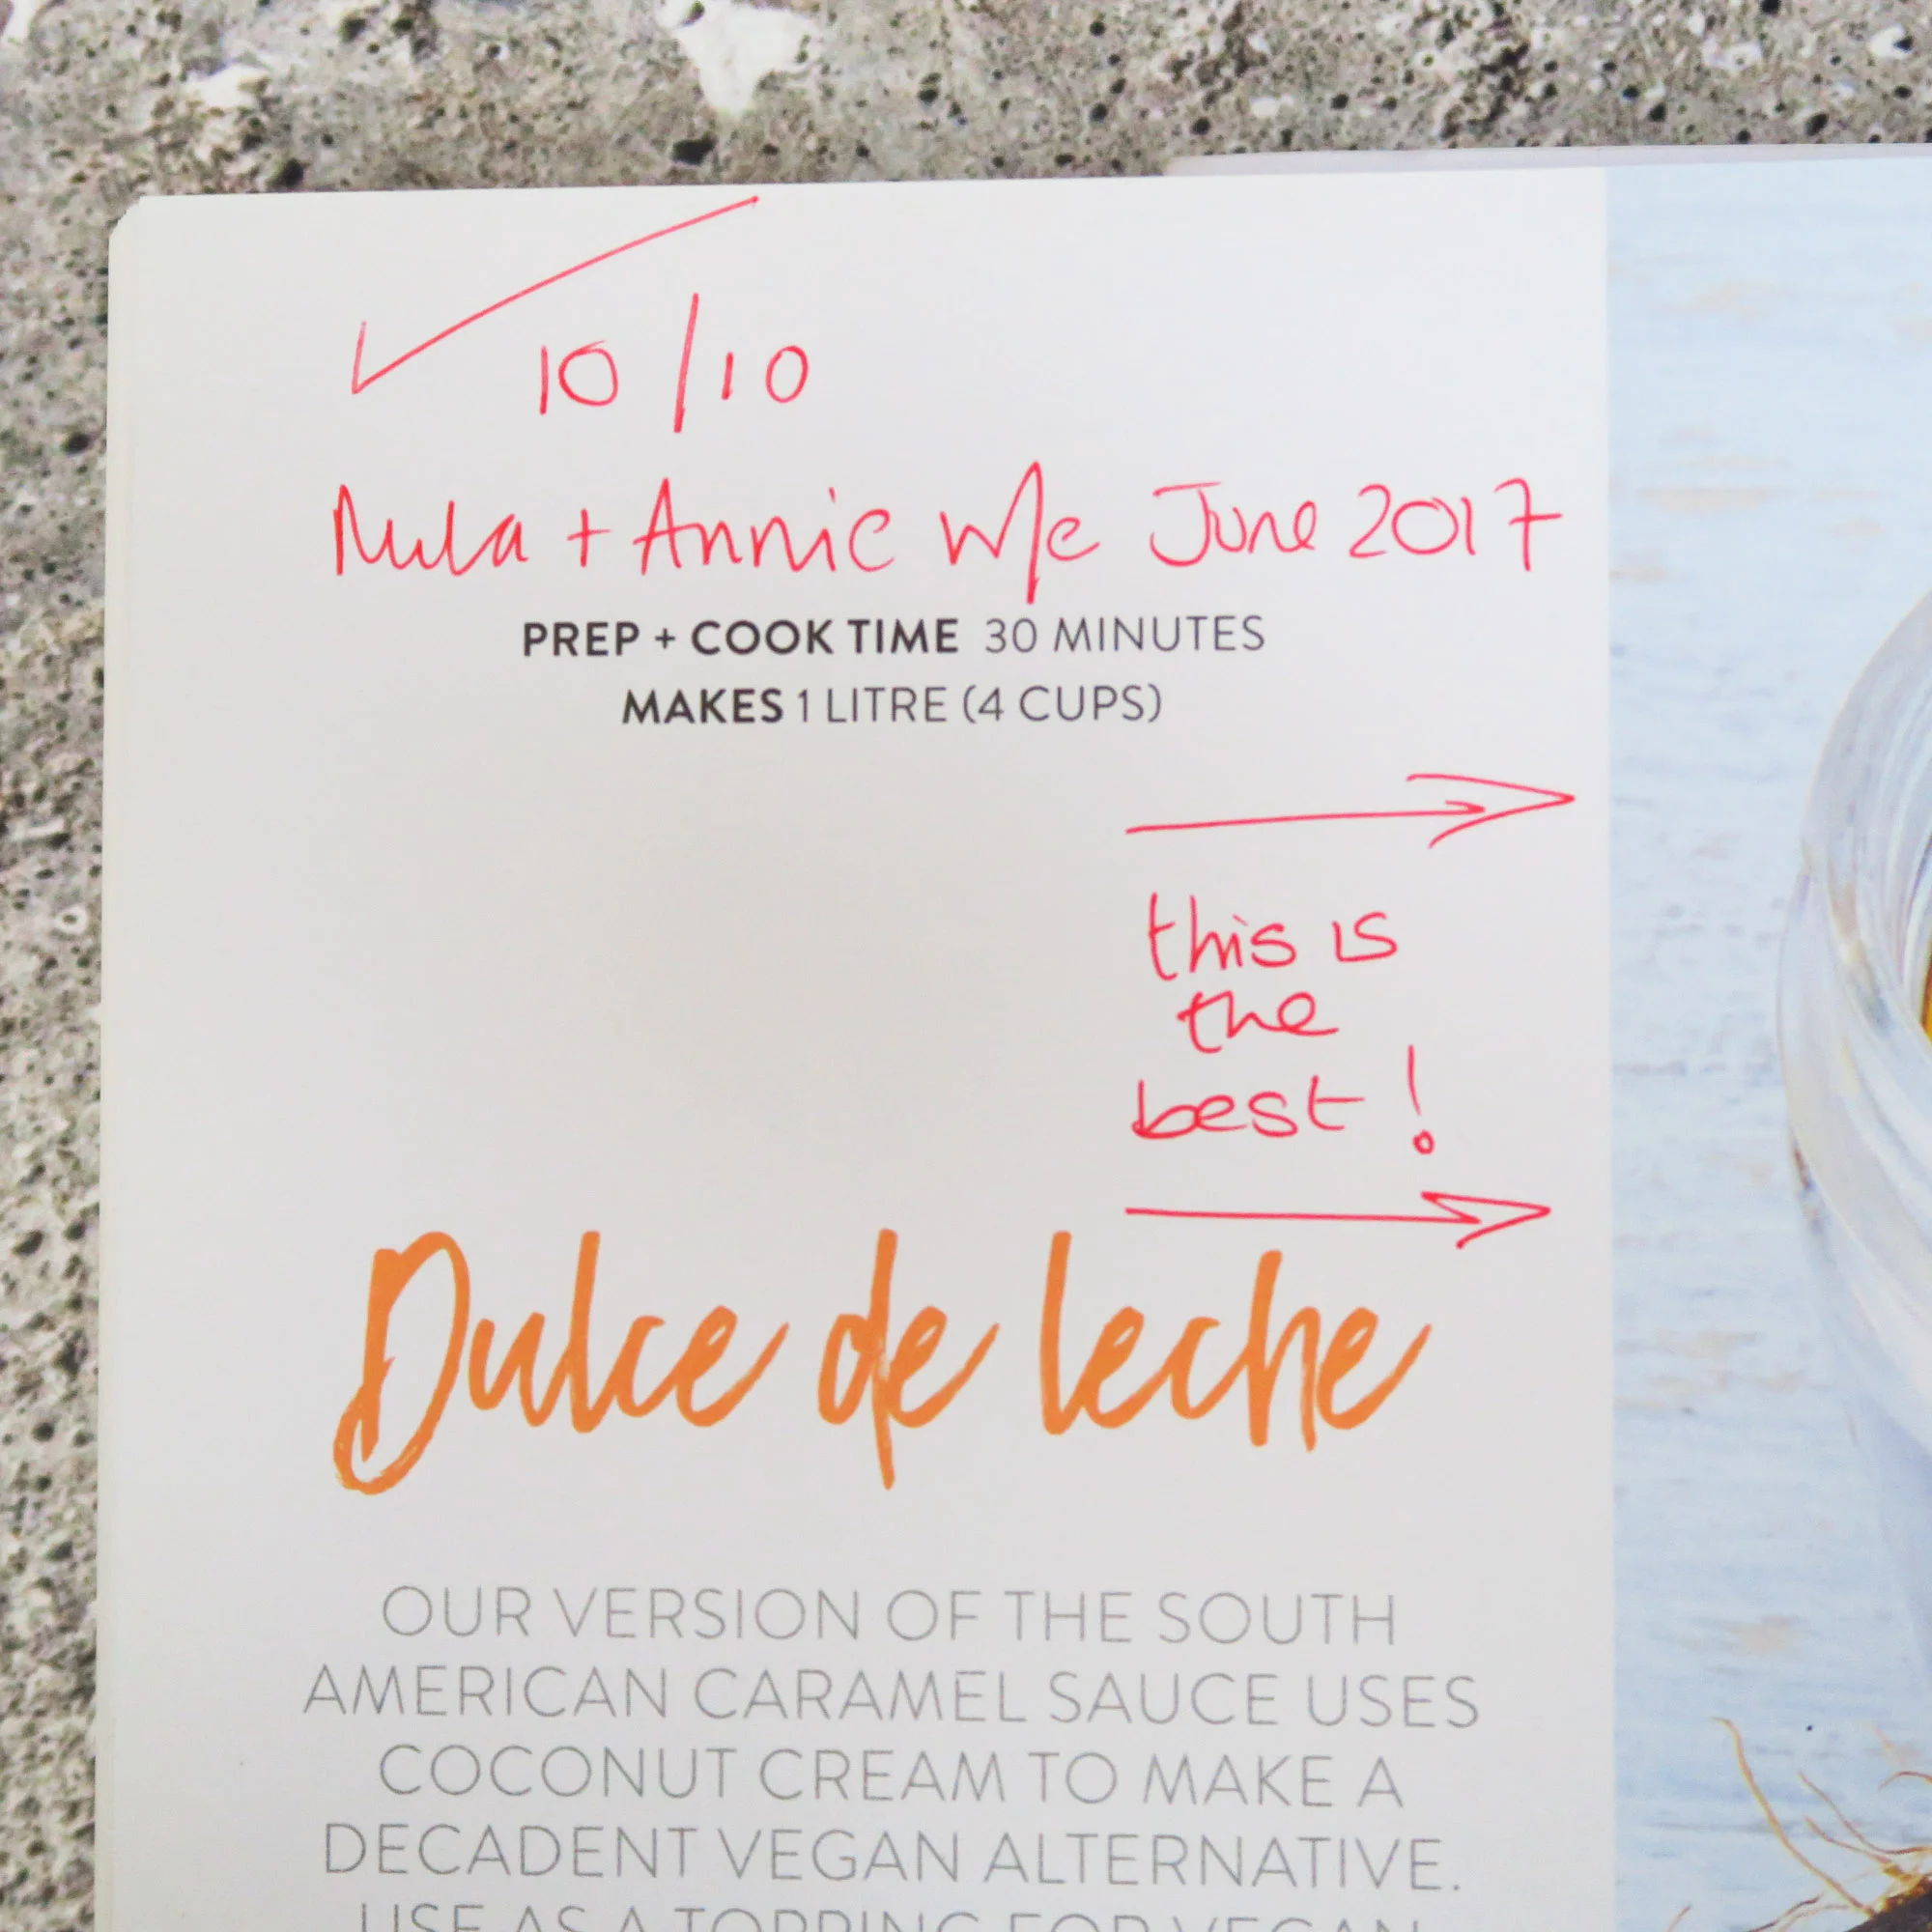 10/10
+ Annie w/e June 2017
PREP + COOK TIME 30 MINUTES
MAKES 1 LITRE (4 CUPS)
this is
the
best!
Dulce de leche
OUR VERSION OF THE SOUTH
AMERICAN CARAMEL SAUCE USES
COCONUT CREAM TO MAKE A
DECADENT VEGAN ALTERNATIVE.
USE AS A TOPPING FOR VEGAN